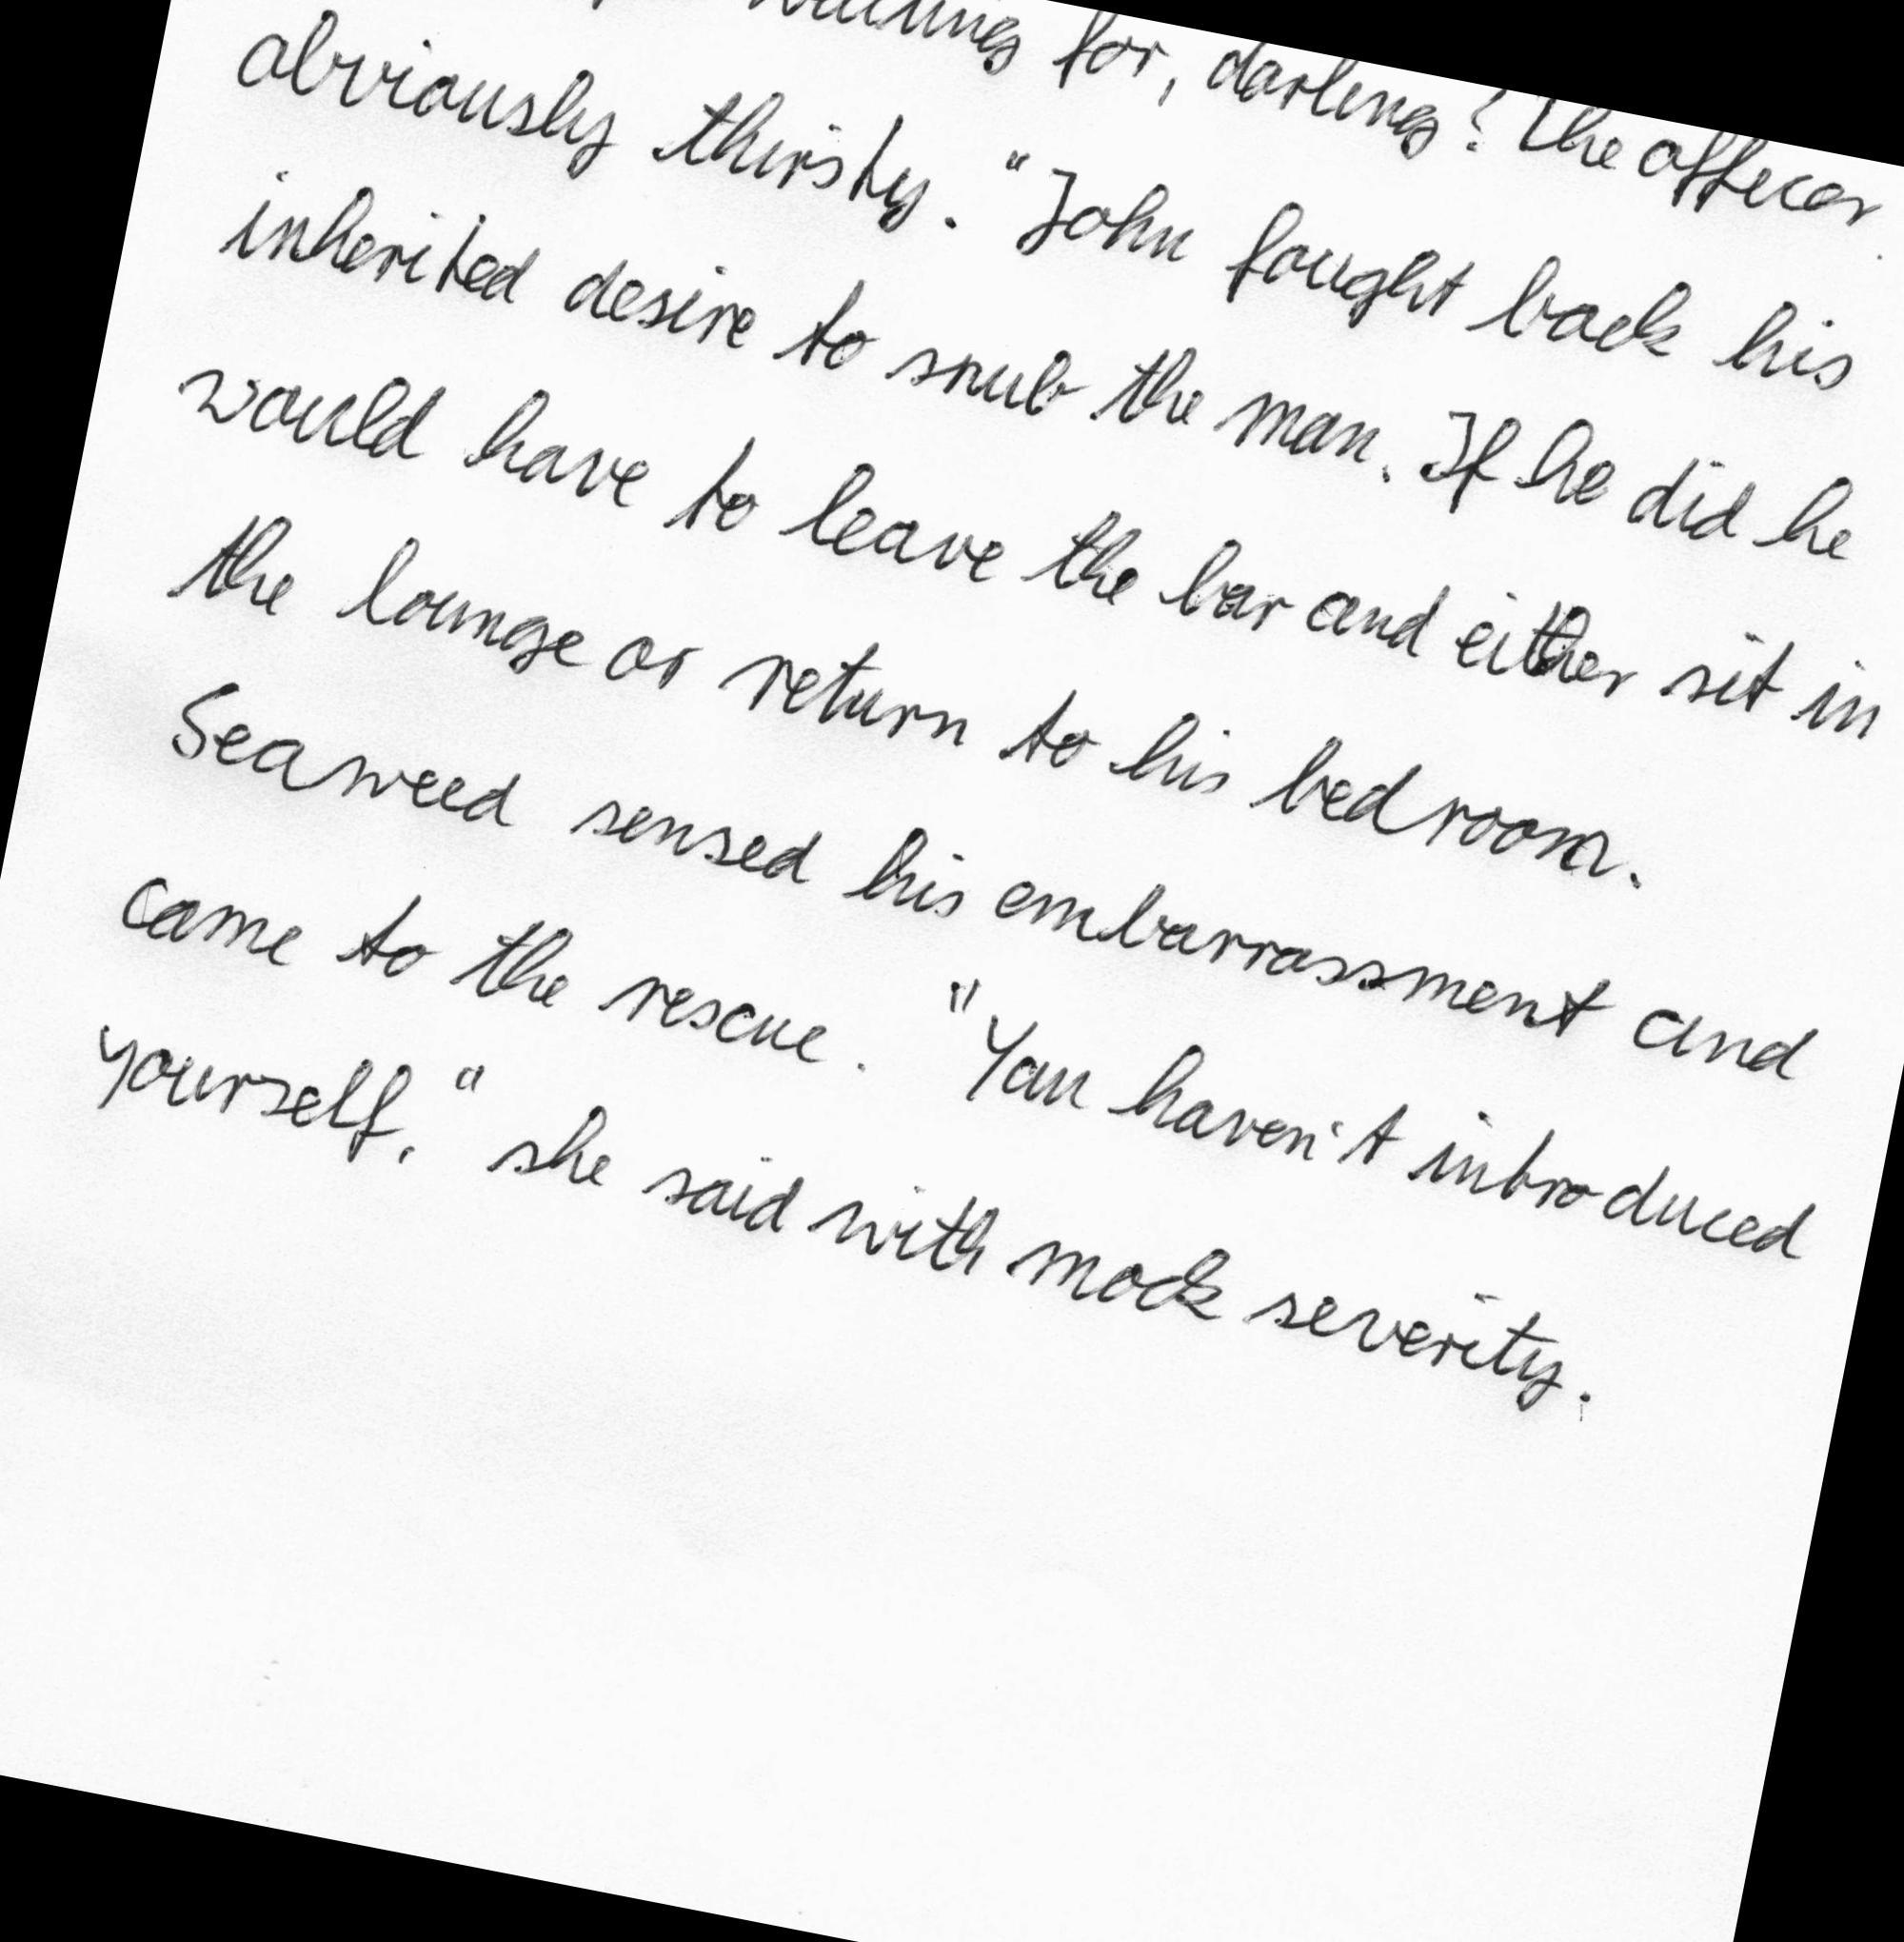 waiting for, darling? The officer
obviously thirsty." John fought back his
inherited desire to snub the man. If he did he
would have to leave the bar and either sit in
the lounge or return to his bedroom.
Seaweed sensed his embarrassment and
came to the rescue. "You haven't introduced
yourself," she said with mock severity.